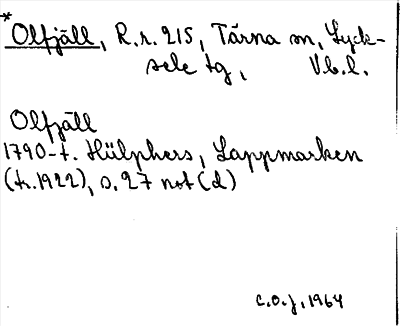 *Olfjäll, R.r. 215, Tärna sn, Lyck-
sele tg, Vb.l.
Olfjäll
1790-t. Hülphers, Lappmarken
(tr. 1922), s. 27 not (d)
C.O.J., 1964